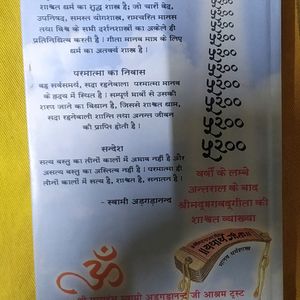 शाश्वत धर्म का शुद्ध शास्त्र है; जो चारों वेद,
उपनिषद्, समस्त योगशास्त्र, रामचरित मानस
तथा विश्व के सभी दर्शनशास्त्रों का अकेले ही
प्रतिनिधित्व करती है । गीता मानव मात्र के लिए
धर्म का अतर्क्य शास्त्र है ।
परमात्मा का निवास
वह सर्वसमर्थ, सदा रहनेवाला परमात्मा मानव
के हृदय में स्थित है । सम्पूर्ण भावों से उसकी
शरण जाने का विधान है, जिससे शाश्वत धाम,
सदा रहनेवाली शान्ति तथा अनन्त जीवन
की प्राप्ति होती है ।
सन्देश
सत्य वस्तु का तीनों कालों में अभाव नहीं है और
असत्य वस्तु का अस्तित्व नहीं है । परमात्मा ही
तीनों कालों में सत्य है, शाश्वत है, सनातन है ।
- स्वामी अड़गड़ानन्द
वर्षों के लम्बे
अन्तराल के बाद
श्रीमद्भगवद्गीता की
शाश्वत व्याख्या
ॐ
स्वामी अड़गड़ानन्द जी आश्रम ट्रस्ट